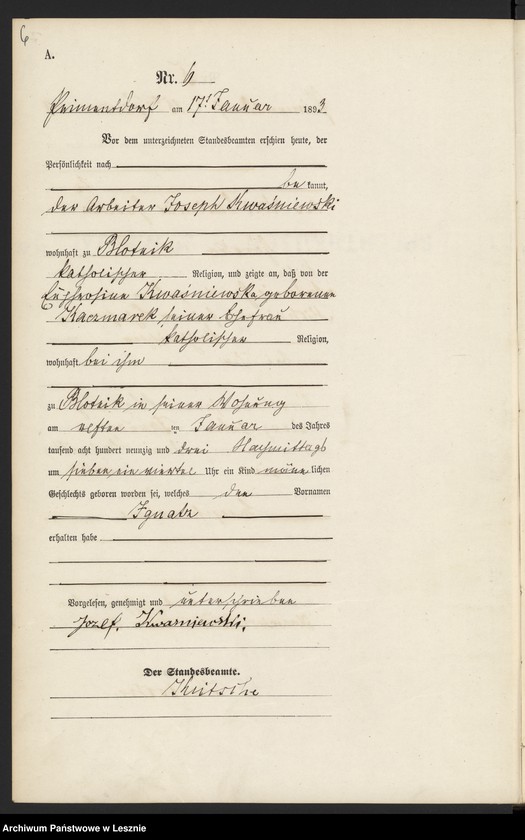 6
A.
Nr. 6
Priementdorf am 17t Januar 1893
Vor dem unterzeichneten Standesbeamten erschien heute, der
Persönlichkeit nach
bekannt,
der Arbeiter Joseph Kwaśniewski
wohnhaft zu Blotnik
katholischer Religion, und zeigte an, daß von der
Euphrosine Kwaśniewska geborenen
Kaczmarek, seiner Ehefrau
katholischer Religion,
wohnhaft bei ihm
zu Blotnik in seiner Wohnung
am elften ten Januar des Jahres
tausend acht hundert neunzig und drei Nachmittags
um sieben ein viertel Uhr ein Kind männlichen
Geschlechts geboren worden sei, welches den Vornamen
Ignatz
erhalten habe
Vorgelesen, genehmigt und unterschrieben
Jozef. Kwasniewski.
Der Standesbeamte.
Archiwum Państwowe w Lesznie